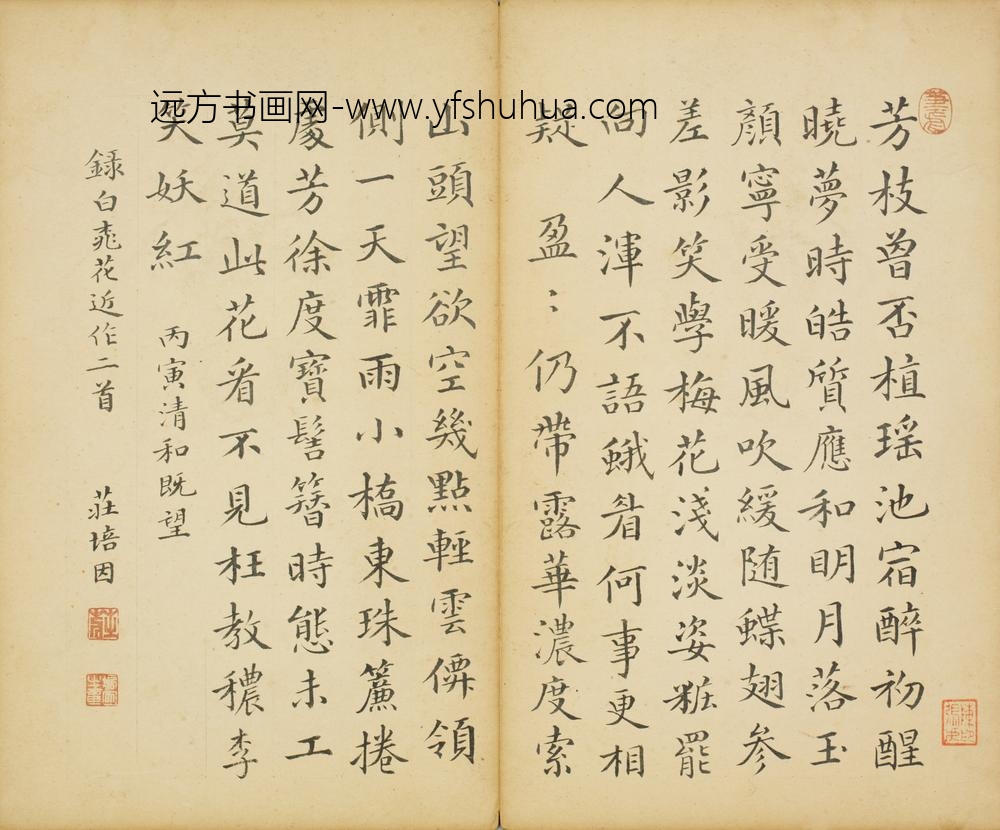 芳枝曾否植瑶池宿醉初醒
曉夢時皓質應和明月落玉
顏寧受暖風吹緩随蝶翅參
差影笑學梅花淺淡姿粧罷
向人渾不語蛾眉何事更相
疑 盈〻仍帶露華濃度索
山頭望欲空幾點輕雲僻領
側一天霏雨小橋東珠簾捲
處芳徐度寶髻簪時態未工
莫道此花看不見枉教穠李
笑妖紅 丙寅清和既望
録白桃花近作二首 莊培因
远方书画网-www.yfshuhua.com